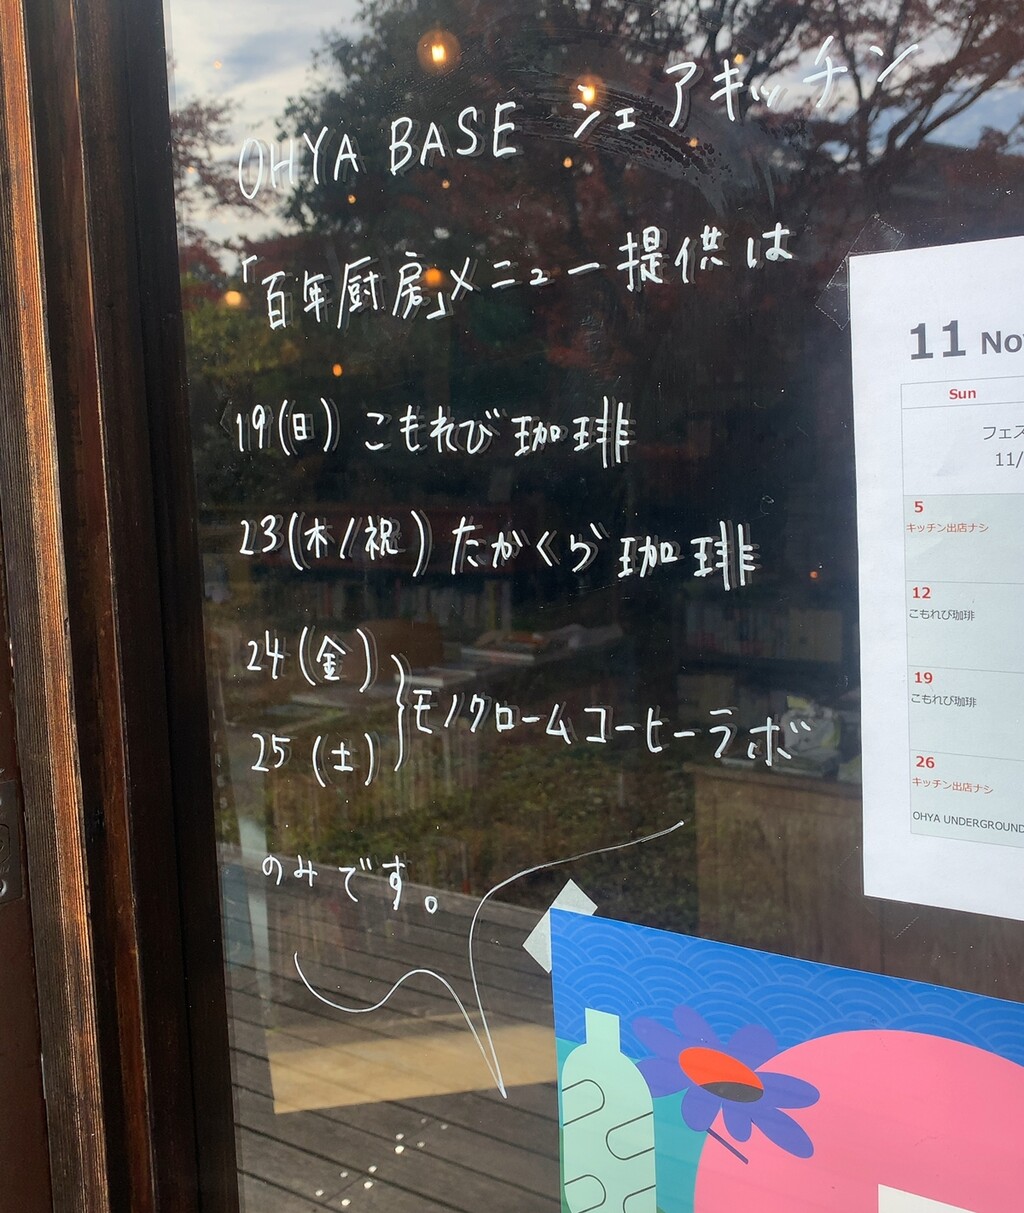 OHYA BASE シェアキッチン
「百年厨房」メニュー提供は
19(日) こもれび珈琲
23(木/祝) たかくら珈琲
24(金)
25(土)
モノクロームコーヒーラボ
のみです。
11 No
Sun
フェス
11/
5
キッチン出店ナシ
12
こもれび珈琲
19
こもれび珈琲
26
キッチン出店ナシ
OHYA UNDERGROUND